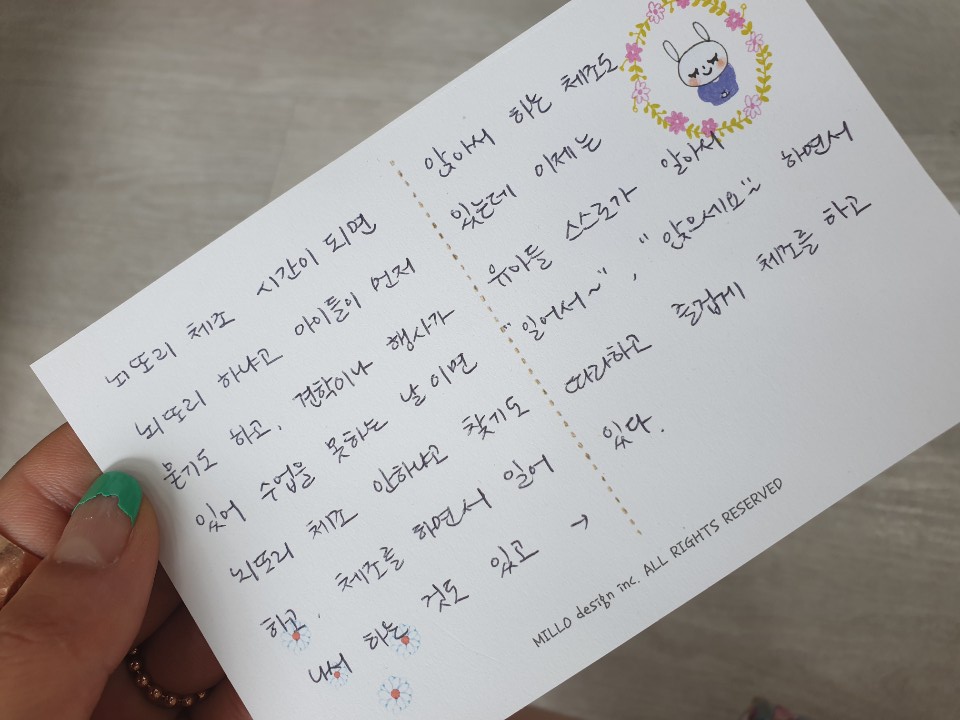 뇌또리 체조 시간이 되면
뇌또리 하냐고 아이들이 먼저
묻기도 하고, 견학이나 행사가
있어 수업을 못하는 날이면
뇌또리 체조 안하냐고 찾기도
하고, 체조를 하면서 일어
나서 하는 것도 있고 →
앉아서 하는 체조도
있는데 이제는
유아들 스스로가 알아서
"일어서~", "앉으세요~" 하면서
따라하고 즐겁게 체조를 하고
있다.
MILLO design inc. ALL RIGHTS RESERVED